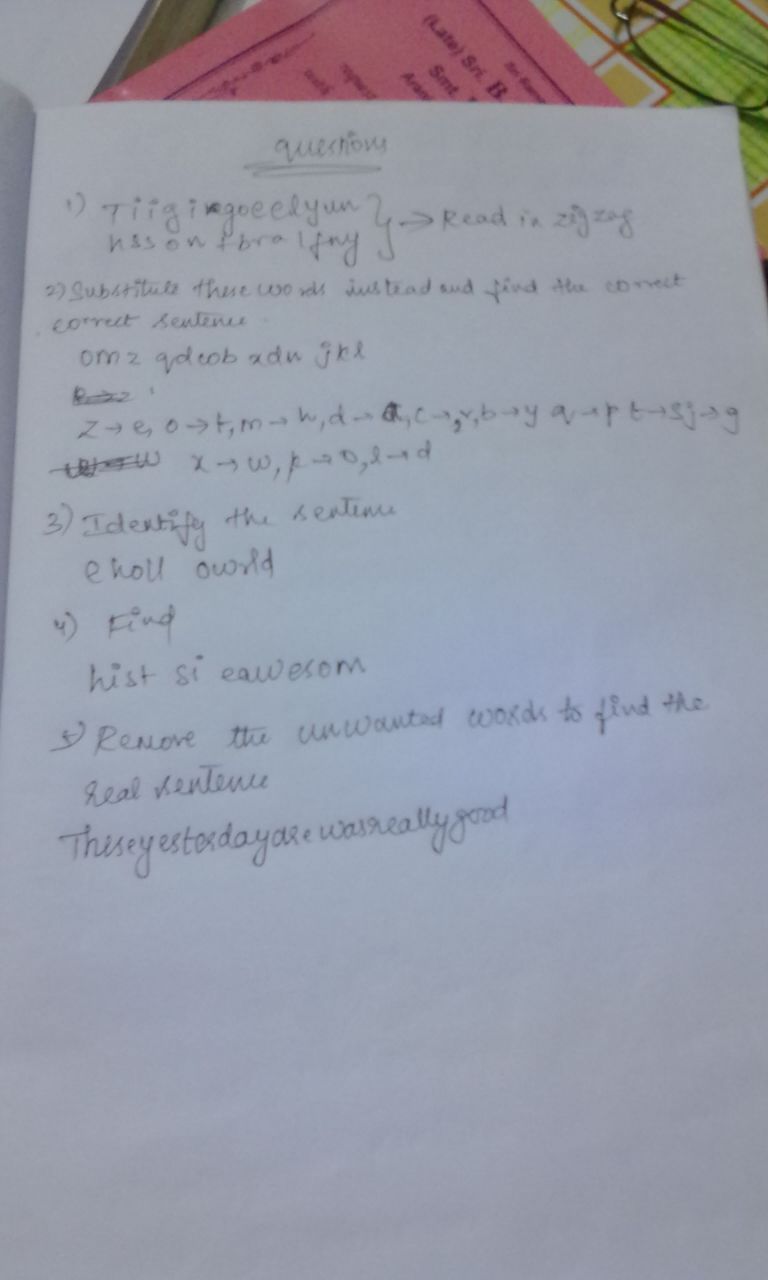 (Late) Sri. B.
Smt.
questions
1) Tiigingoeelyun } → Read in zigzag
hssonfbralfny
2) Substitute these words instead and find the correct
correct sentence.
omz qdcob xdn jkl
z→e, o→t, m→h, d→a, c→r, b→y q→p t→s j→g
x→w, k→o, l→d
3) Identify the sentence
eholl oworld
4) Find
hist si eawesom
5) Remove the unwanted words to find the
real sentence
Theseyesterdayarewasreallygood